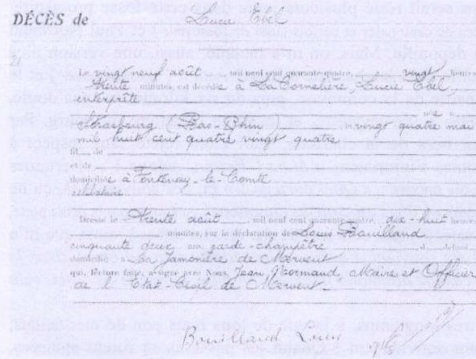 DÉCÈS de Lucie Ebel
Le vingt neuf août mil neuf cent quarante-quatre, vingt heures
trente minutes, est décédée à La Cornelière, Lucie Ebel,
interprète
née à
Strasbourg (Bas-Rhin) le vingt quatre mai
mil huit cent quatre vingt quatre
fil de
et de
domiciliée à Fontenay-le-Comte
célibataire
Dressé le trente août mil neuf cent quarante-quatre, dix-huit heures
minutes, sur la déclaration de Louis Bouilland
cinquante deux ans garde-champêtre
domicilié à la Jamonière de Mervent
qui, lecture faite, a signé avec Nous, Jean Normand, Maire et Officier
de l'Etat-Civil de Mervent.
Bouilland Louis